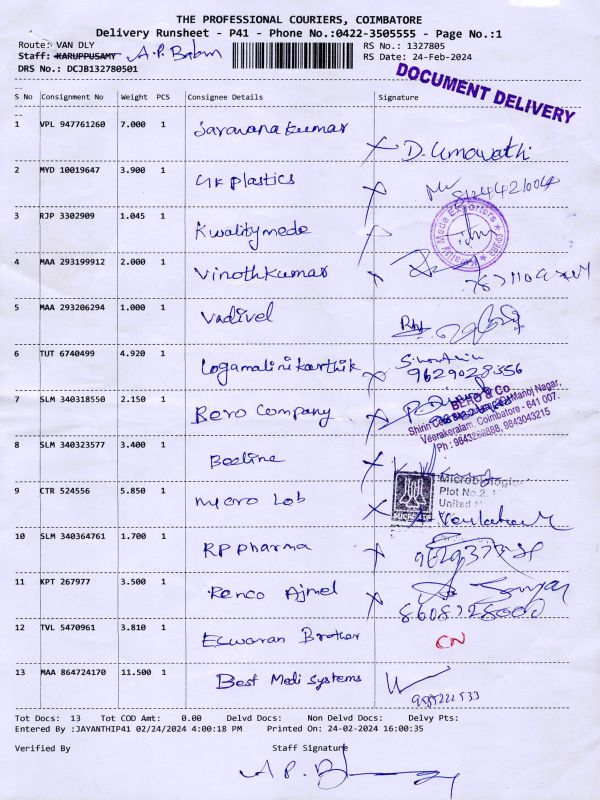 THE PROFESSIONAL COURIERS, COIMBATORE
Delivery Runsheet - P41 - Phone No.:0422-3505555 - Page No.:1
Route: VAN DLY RS No.: 1327805
Staff: KARUPPUSAMY A.P. Babu RS Date: 24-Feb-2024
DRS No.: DCJB132780501
DOCUMENT DELIVERY
S No Consignment No Weight PCS Consignee Details Signature
1 VPL 947761260 7.000 1 Saravana kumar D. Umavathi
2 MYD 10019647 3.900 1 UK Plastics
3 RJP 3302909 1.045 1 Kwalitymede
4 MAA 293199912 2.000 1 Vinothkumar
5 MAA 293206294 1.000 1 Vadivel
6 TUT 6740499 4.920 1 Logamalinikarthik 9629028356
7 SLM 340318550 2.150 1 Bero Company
BERO & Co
Manoj Nagar,
Veerakeralam, Coimbatore - 641 007.
9843043215
8 SLM 340323577 3.400 1 Beeline
9 CTR 524556 5.850 1 Micro Lob
Plot No.2,
United
10 SLM 340364761 1.700 1 RP Pharma
11 KPT 267977 3.500 1 Renco Ajmel
12 TVL 5470961 3.810 1 Eswaran Brother CN
13 MAA 864724170 11.500 1 Best Medi Systems
Tot Docs: 13 Tot COD Amt: 0.00 Delvd Docs: Non Delvd Docs: Delvy Pts:
Entered By :JAYANTHIP41 02/24/2024 4:00:18 PM Printed On: 24-02-2024 16:00:35
Verified By Staff Signature
A.P. B